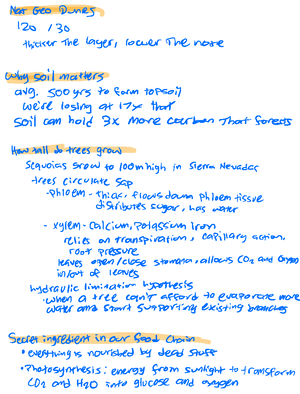 Nat Geo Dunes
120 / 30
thicker the layer, lower the note
Why soil matters
avg. 500 yrs to form topsoil
we're losing at 17x that
soil can hold 3x more carbon that forests
How tall do trees grow
Sequoias grow to 100m high in Sierra Nevadas
trees circulate sap
- Phloem - thick, flows down phloem tissue
distributes sugar, has water
- xylem - calcium, potassium, iron
relies on transpiration, capillary action,
root pressure
leaves open/close stomata, allows CO2 and oxygen
in/out of leaves
hydraulic limitation hypothesis
- when a tree can't afford to evaporate more
water and start supporting existing branches
Secret ingredient in our food chain
• everything is nourished by dead stuff
• Photosynthesis: energy from sunlight to transform
CO2 and H2O into glucose and oxygen